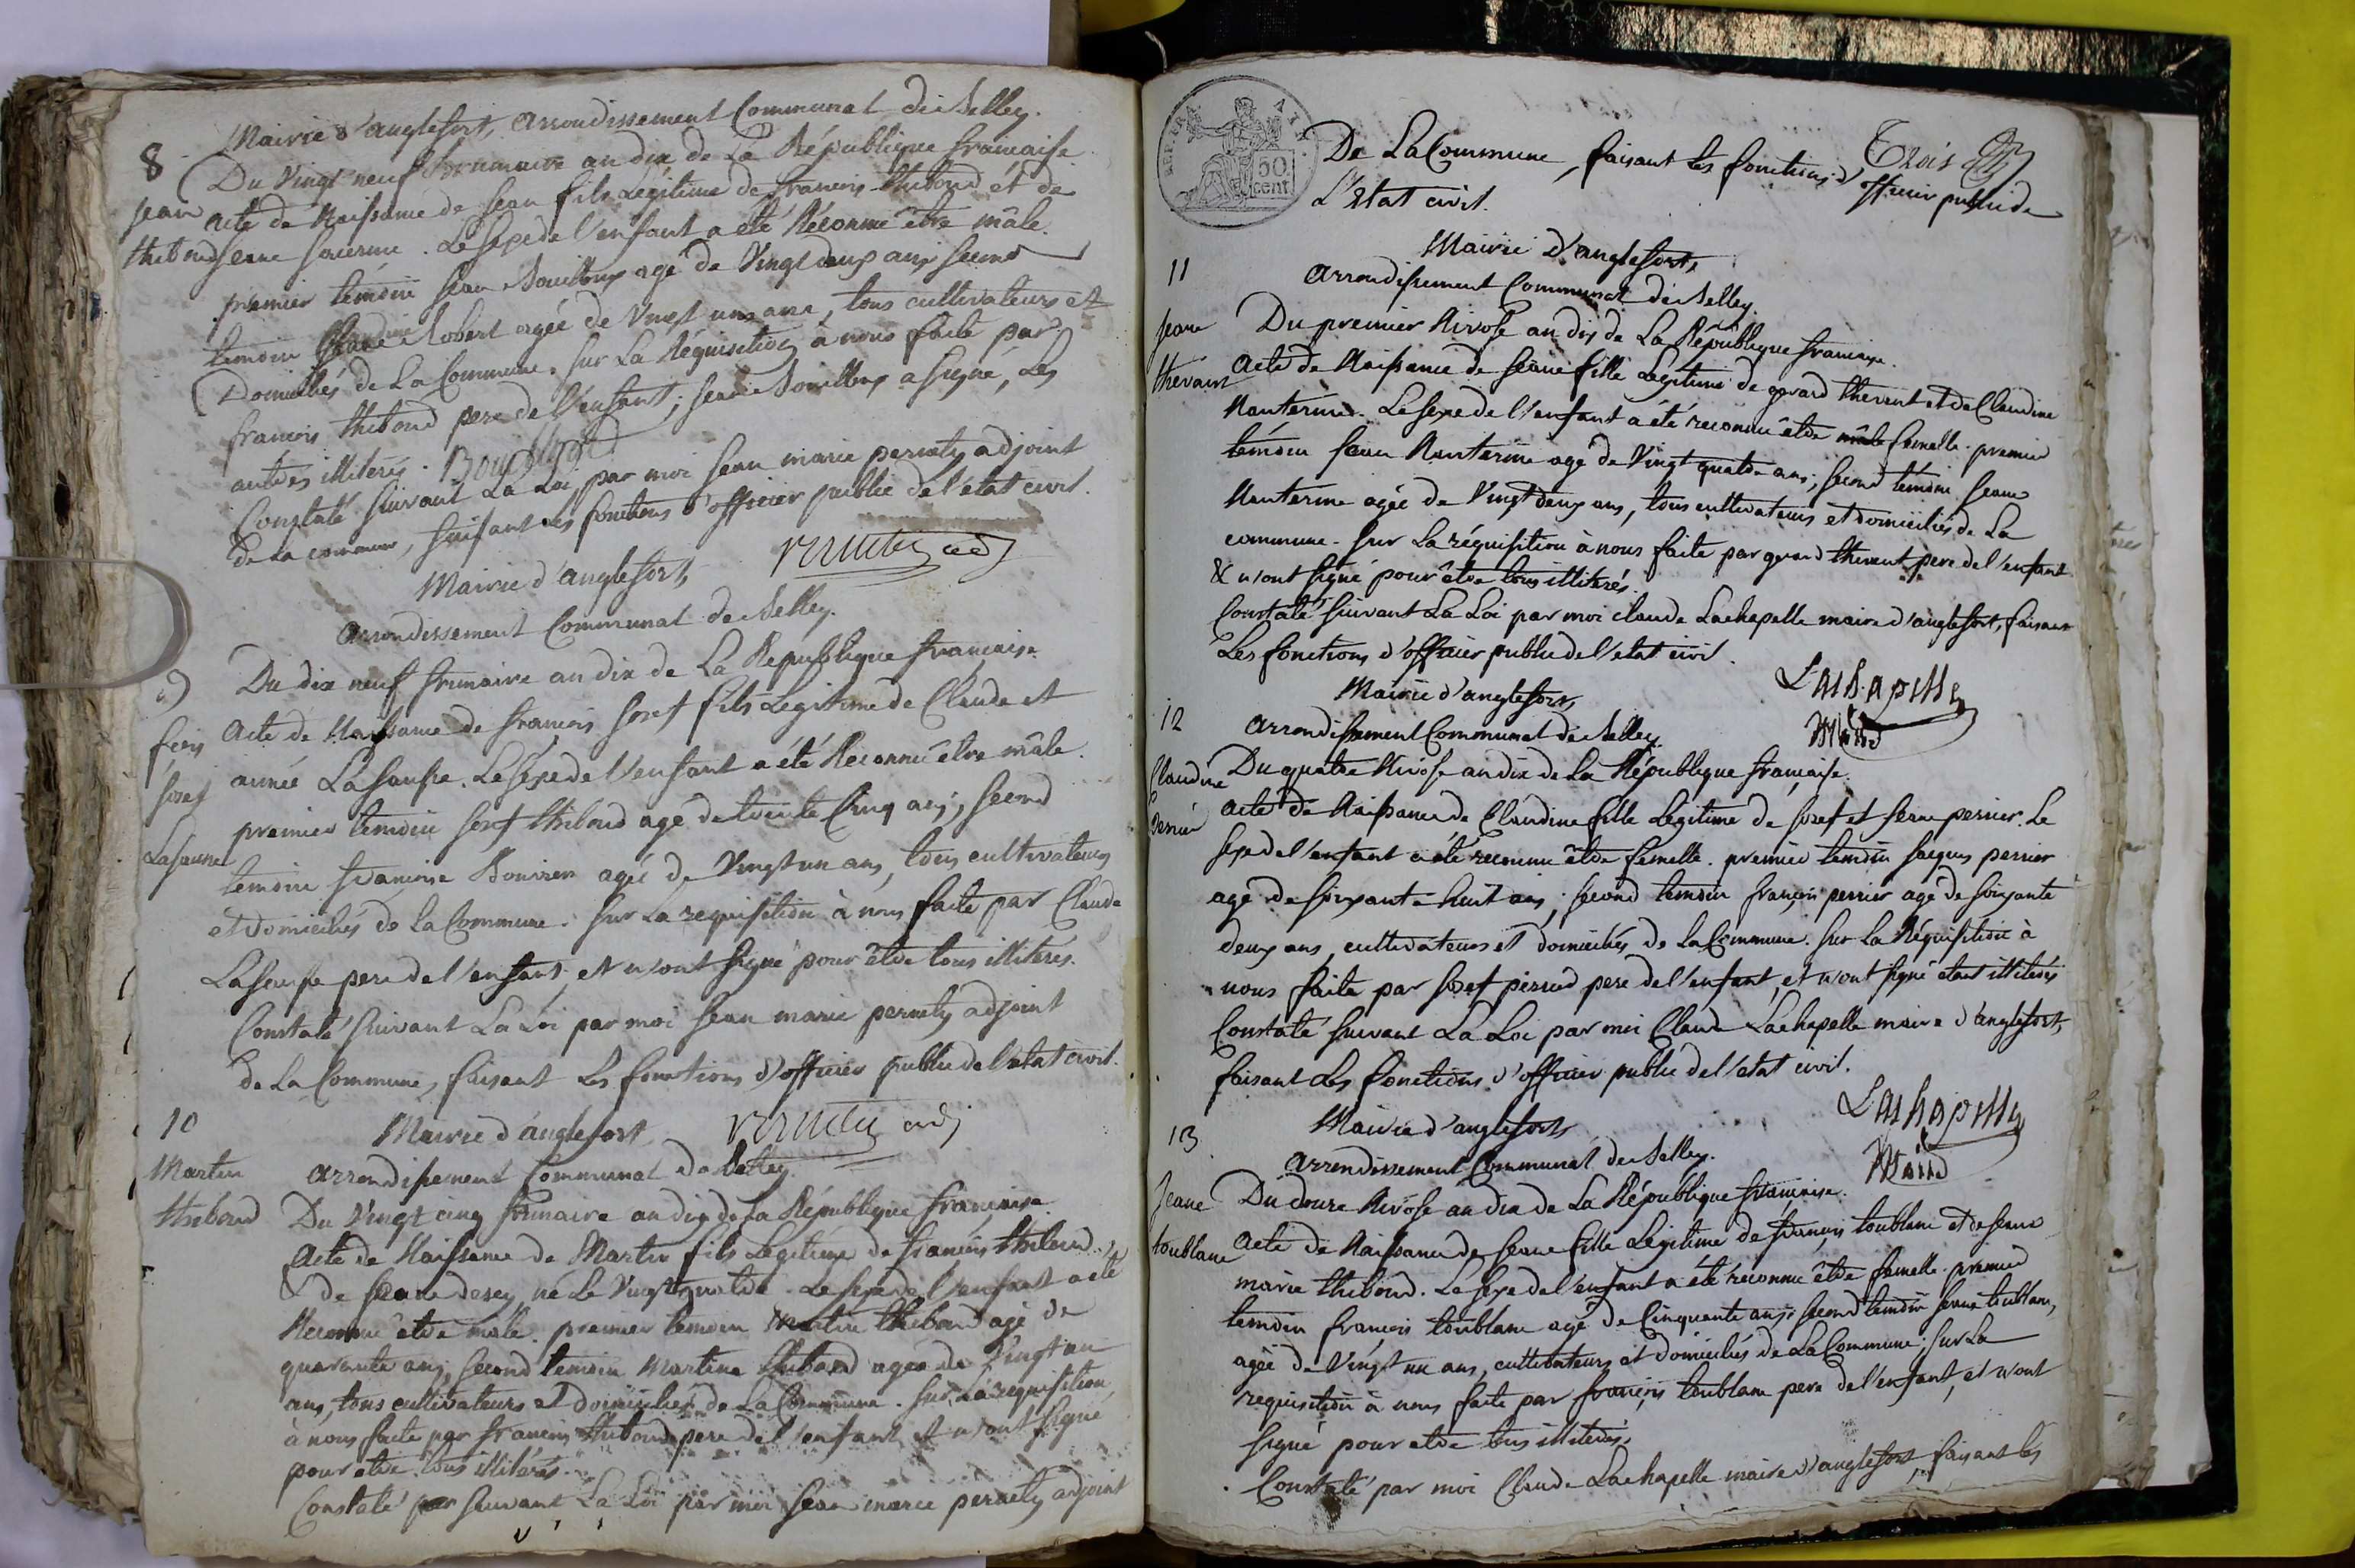 8
Jean
thiboud
Mairie d'anglefort, arrondissement Communal de Belley.
Du Vingt neuf Brumaire an dix de La République française
acte de Naissance de Jean fils Légitime de françois thiboud et de
Jeane . Le sexe de l'enfant a été Réconnu être mâle.
premier témoin Jean agé de Vingt deux ans second
témoin Claudine Robert agée de Vingt un ans, tous cultivateurs et
Domiciliés de La Commune. Sur La Réquisition à nous faite par
françois thiboud pere de l'enfant; Jean a signé, Les
autres illiterés.
Constaté suivant La Loi par moi Jean marie pernety adjoint
de la commune, faisant les fonctions d'officier public de l'etat civil.
pernety adj
9
fçois
Josef
Lasausse
Mairie d'anglefort,
arrondissement Communal de Belley.
Du dix neuf frimaire an dix de La République française
Acte de Naissance de françois Josef fils Légitime de Claude et
année Lasausse. Le sexe de l'enfant a été Réconnu être mâle.
premier témoin Josef thiboud agé de trente Cinq ans, second
témoin françoise Bouvier agée de Vingt un ans, tous cultivateurs
et Domiciliés de la Commune. Sur La requisition à nous faite par Claude
Lasausse pere de l'enfant, et n'ont signé pour être tous illiterés.
Constaté suivant La Loi par moi Jean marie pernety adjoint
de La Commune, faisant Les fonctions d'officier public de l'etat civil.
pernety adj
10
Martin
thiboud
Mairie d'anglefort
arrondissement Communal de Belley.
Du Vingt cinq frimaire an dix de La République française.
Acte de Naissance de Martin fils Légitime de françois thiboud
& de Jeane né Le Vingt quatre. Le sexe de l'enfant a été
Reconnu être mâle. premier témoin Martin thiboud agé de
quarante ans, second témoin Martine thiboud agée de Vingt un
ans, tous cultivateurs et domiciliés de La Commune. Sur La requisition
à nous faite par françois thiboud pere de l'enfant et n'ont signé
pour être tous illiterés.
Constaté par suivant La Loi par moi Jean marie pernety adjoint
50
cent
Trois
De La Commune, faisant les fonctions d'officier public de
L'Etat civil.
11
Jeane
thevent
Mairie d'anglefort,
arrondissement Communal de Belley.
Du premier Nivose an dix de La République française.
Acte de Naissance de Jeane fille Légitime de gerard thevent et de Claudine
Nanterme. Le sexe de l'enfant a été reconnu être mâle femelle. premier
témoin Jean Nanterme agé de Vingt quatre ans, second témoin Jeane
Nanterme agée de Vingt deux ans, tous cultivateurs et domiciliés de La
commune. Sur La réquisition à nous faite par gerard thevent pere de l'enfant
& n'ont signé pour être tous illiterés.
Constaté suivant La Loi par moi Claude Lachapelle maire d'anglefort, faisant
Les fonctions d'officier public de l'etat civil.
Lachapelle
Maire
12
Claudine
perrier
Mairie d'anglefort,
arrondissement Communal de Belley.
Du quatre Nivose an dix de La République française.
acte de Naissance de Claudine fille Légitime de Josef et Jeane perrier. Le
sexe de l'enfant a été reconnu être femelle. premier témoin Jacques perrier
agé de soixante-huit ans, second témoin françois perrier agé de soixante
deux ans, cultivateurs et domiciliés de La Commune. Sur La Réquisition à
nous faite par Josef perrier pere de l'enfant, et n'ont signé étant illiterés
Constaté suivant La Loi par moi Claude Lachapelle maire d'anglefort,
faisant Les fonctions d'officier public de l'etat civil.
Lachapelle
Maire
13
Jeane
toublanc
Mairie d'anglefort,
arrondissement Communal de Belley.
Du douze Nivose an dix de La République française.
acte de Naissance de Jeane fille Légitime de françois toublanc et de Jeane
marie thiboud. Le sexe de l'enfant a été reconnu être femelle. premier
témoin françois toublanc agé de Cinquante ans, second témoin Jeane toublanc,
agée de Vingt un ans, cultivateurs et domiciliés de La Commune. Sur La
requisition à nous faite par françois toublanc pere de l'enfant, et n'ont
signé pour etre tous illiterés.
Constaté par moi Claude Lachapelle maire d'anglefort, faisant les